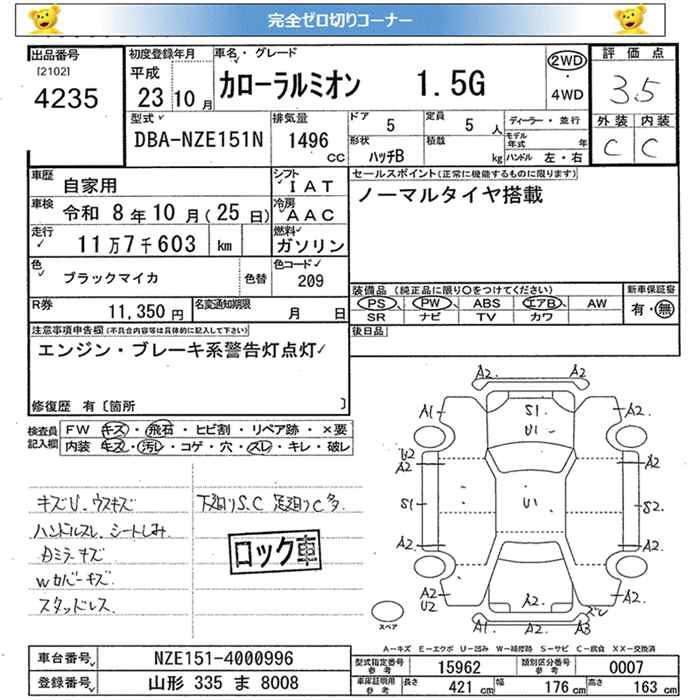 完全ゼロ切りコーナー
出品番号
[2102]
4235
初度登録年月
平成
23 10 月
車名・グレード
カローラルミオン 1.5G
2WD
・
4WD
評価点
3.5
外装 内装
C C
型式
DBA-NZE151N
排気量
1496
CC
ドア
5
定員
5 人
形状
ハッチB
積載
kg
ディーラー・並行
モデル年式 年
ハンドル 左・右
車歴
自家用
シフト
IAT
車検
令和 8 年 10 月(25 日)
冷房
AAC
走行
11万7千603 km
燃料
ガソリン
色
ブラックマイカ
色替
色コード
209
R券
11,350 円
名変通知期限
月 日
セールスポイント(正常に機能するものに限ります)
ノーマルタイヤ搭載
装備品 (純正品に限り○をつけてください)
PS PW ABS エアB AW
SR ナビ TV カワ
新車保証書
有・無
後日品
注意事項申告欄(不具合内容等は具体的に記入して下さい)
エンジン・ブレーキ系警告灯点灯
修復歴 有〔箇所 〕
検査員記入欄
FW キズ・飛石・ヒビ割・リペア跡・×要
内装 キズ・汚レ・コゲ・穴・スレ・キレ・破レ
キズU.ウスキズ
ハンドルスレ.シートしみ.
Dミラーキズ
Wカバーキズ.
スタッドレス.
下廻りS.C 足廻りC多
ロック車
A2 A2
A1 S1 U1 A2
U2 A2 A2
S1 U1 S2
A2 A2
A2 U2 A2. A2. A2 ズレ
A1 A2 A3
スペア
A-キズ E-エクボ U-凹み W-補修跡 S-サビ C-腐食 XX-交換済
車台番号
NZE151-4000996
登録番号
山形 335 ま 8008
型式指定番号
参考
15962
類別区分番号
参考
0007
車庫証明用
参考
長さ 421 cm
幅 176 cm
高さ 163 cm